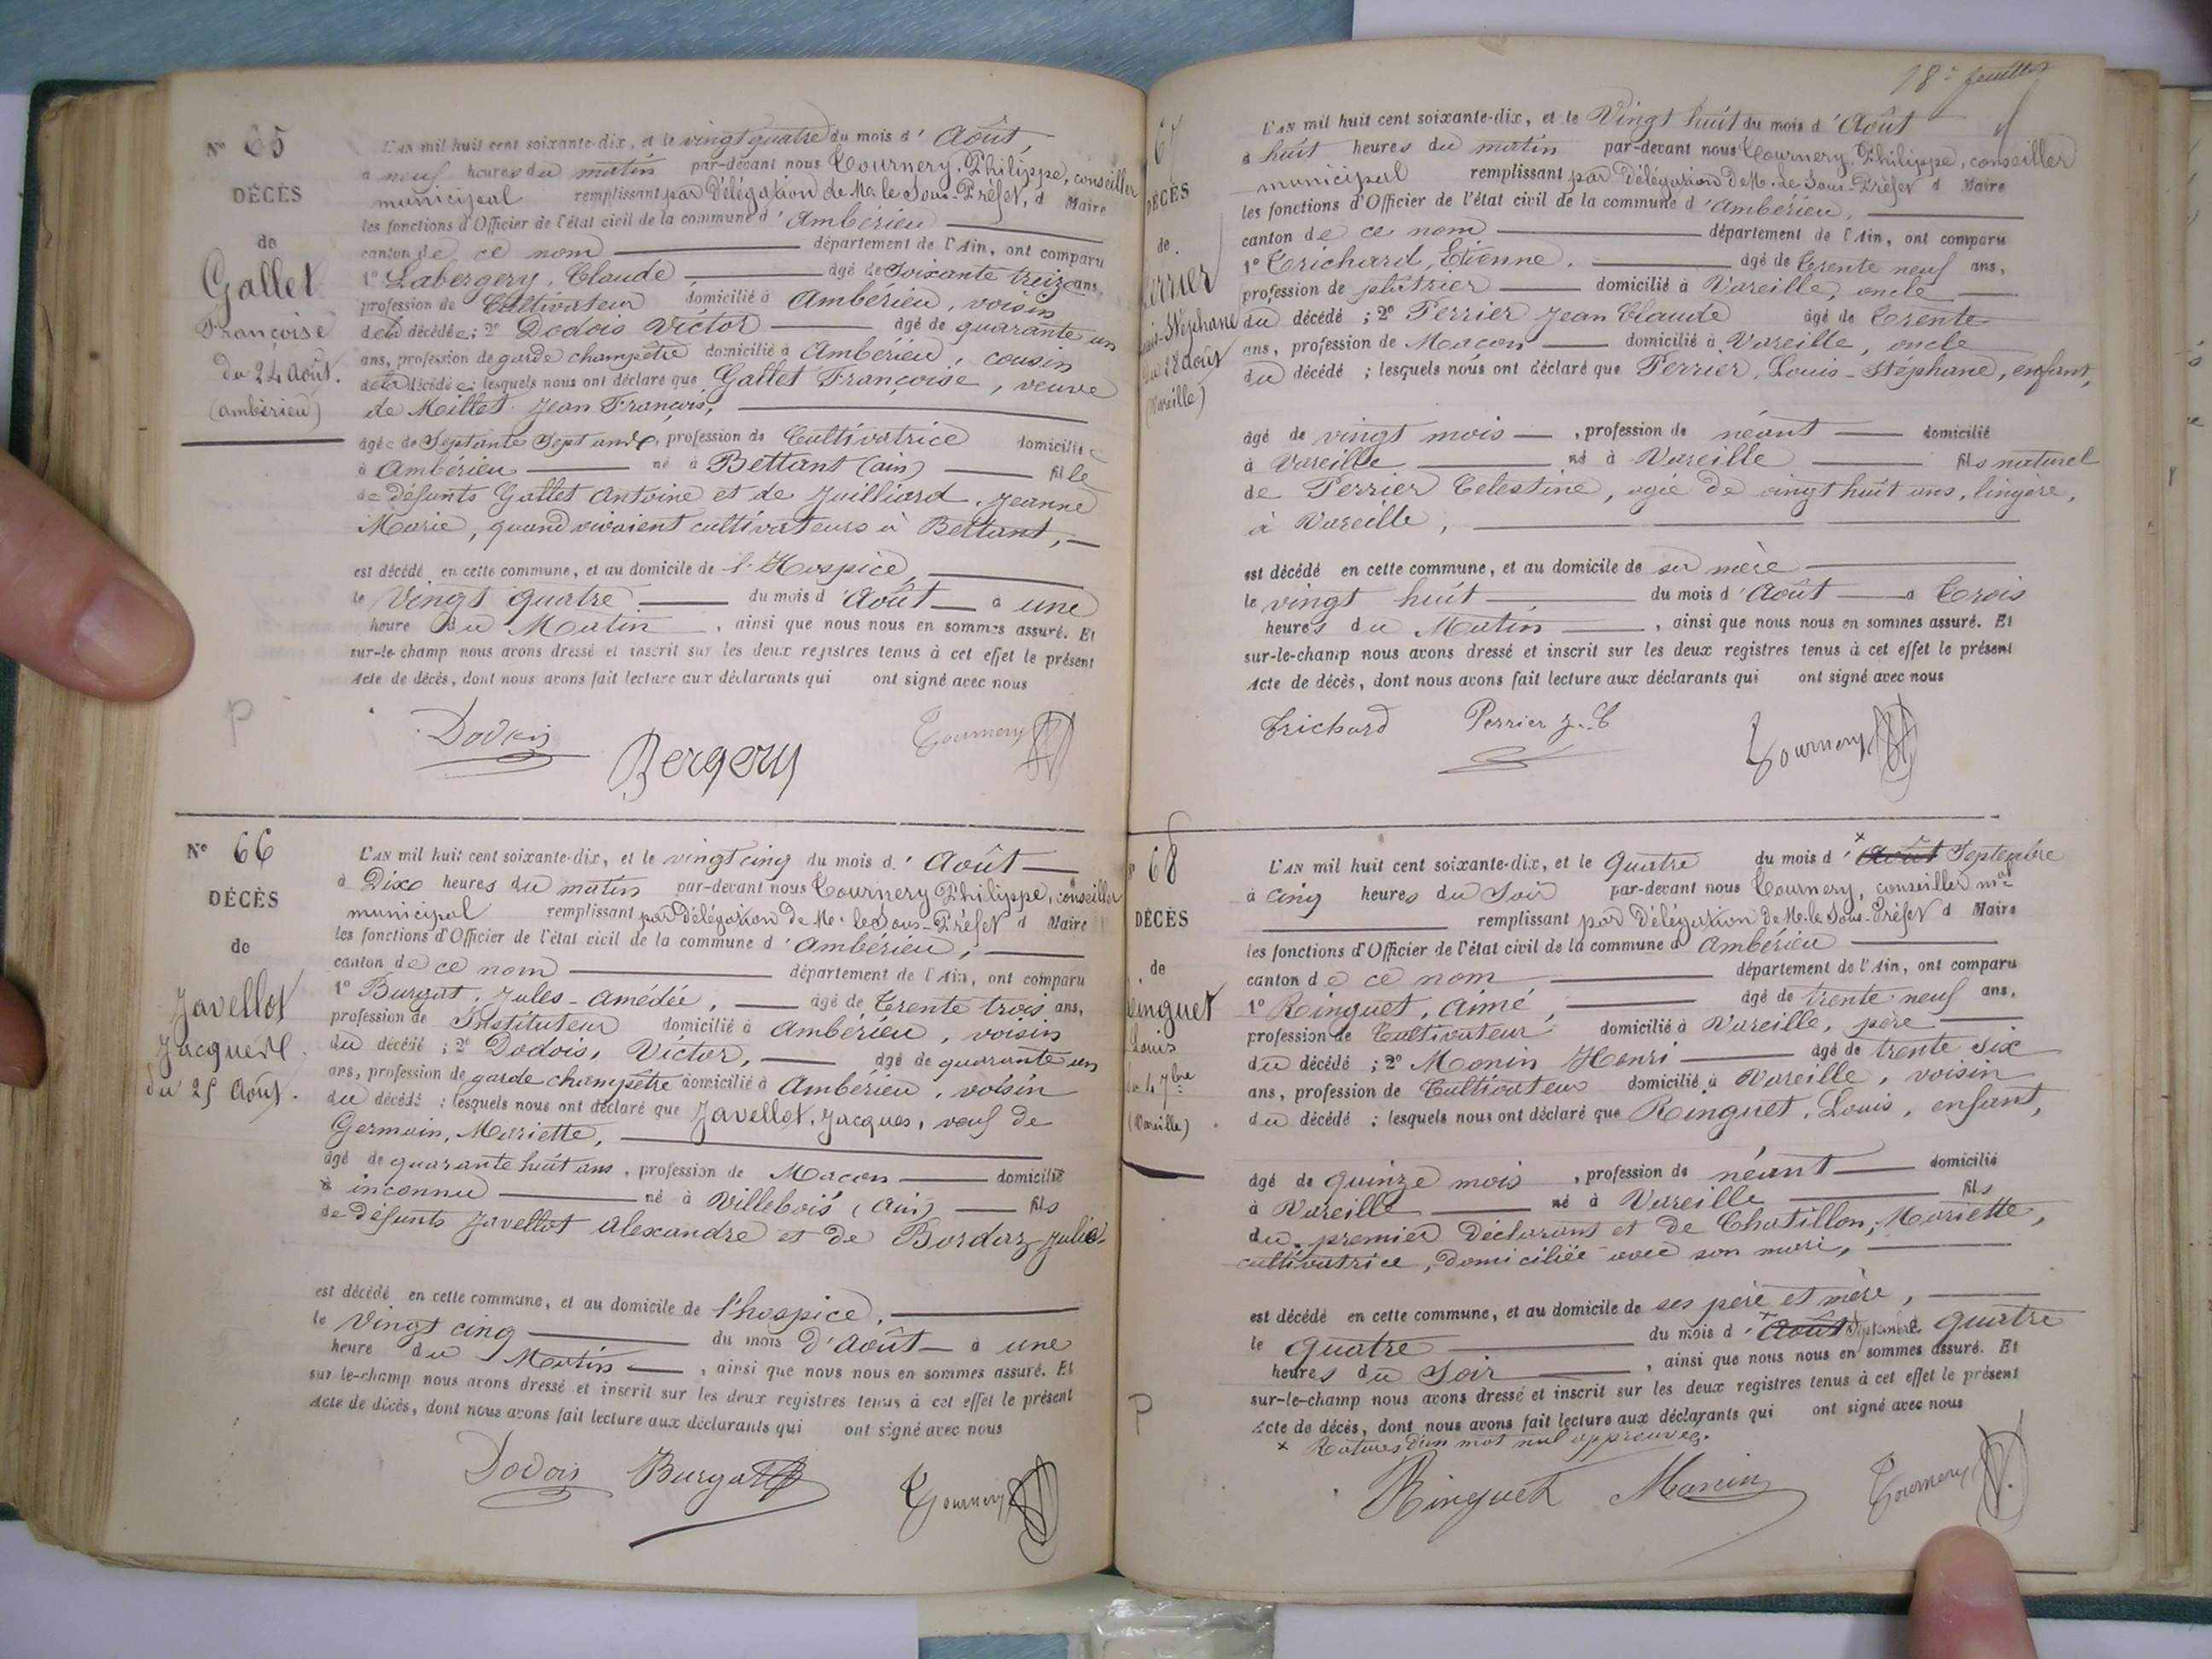 N° 65
DÉCÈS
de
Gallet
Françoise
du 24 Août.
(ambérieu)
L'AN mil huit cent soixante-dix, et le vingt quatre du mois d'Août,
à neuf heures du matin par-devant nous Tournery, Philippe, conseiller
municipal remplissant par Délégation de Mr. le Sous-Préfet, d Maire
les fonctions d'Officier de l'état civil de la commune d'Ambérieu
canton de ce nom département de l'Ain, ont comparu
1° Labergery, Claude, âgé de Soixante treize ans,
profession de Cultivateur domicilié à Ambérieu, voisin
de la décédée; 2° Dodois Victor âgé de quarante un
ans, profession de garde champêtre domicilié à Ambérieu, cousin
de la décédée; lesquels nous ont déclaré que Gallet Françoise, veuve
de Meillet Jean François,
âgée de Septante Sept ans, profession de Cultivatrice domiciliée
à Ambérieu né à Bettant (ain) fille
de défunts Gallet Antoine et de Juilliard, Jeanne
Marie, quand vivaient cultivateurs à Bettant,
est décédé en cette commune, et au domicile de l'Hospice,
le Vingt quatre du mois d'Août à une
heure du Matin, ainsi que nous nous en sommes assuré. Et
sur-le-champ nous avons dressé et inscrit sur les deux registres tenus à cet effet le présent
Acte de décès, dont nous avons fait lecture aux déclarants qui ont signé avec nous
P
Dodois Bergery Tournery
N° 66
DÉCÈS
de
Javellot
Jacques
du 25 Août.
L'AN mil huit cent soixante-dix, et le vingt cinq du mois d'Août
à Dix heures du matin par-devant nous Tournery Philippe, conseiller
municipal remplissant par Délégation de Mr. le Sous-Préfet d Maire
les fonctions d'Officier de l'état civil de la commune d'Ambérieu,
canton de ce nom département de l'Ain, ont comparu
1° Burgat, Jules-Amédée, âgé de Trente trois ans,
profession de Instituteur domicilié à Ambérieu, voisin
du décédé; 2° Dodois, Victor, âgé de quarante un
ans, profession de garde champêtre domicilié à Ambérieu, voisin
du décédé; lesquels nous ont déclaré que Javellot, Jacques, veuf de
Germain, Mariette,
âgé de quarante huit ans, profession de Macon domicilié
à inconnu né à Villebois (Ain) fils
de défunts Javellot Alexandre et de Bordaz Julie.
est décédé en cette commune, et au domicile de l'hospice,
le Vingt cinq du mois d'Août à une
heure du Matin, ainsi que nous nous en sommes assuré. Et
sur-le-champ nous avons dressé et inscrit sur les deux registres tenus à cet effet le présent
Acte de décès, dont nous avons fait lecture aux déclarants qui ont signé avec nous
Dodois Burgat Tournery
18e feuillet
67
DÉCÈS
de
Perrier
Louis-Stéphane
du 28 août
(Vareille)
L'AN mil huit cent soixante-dix, et le Vingt huit du mois d'Août
à huit heures du matin par-devant nous Tournery, Philippe, conseiller
municipal remplissant par Délégation de M. le Sous-Préfet d Maire
les fonctions d'Officier de l'état civil de la commune d'Ambérieu,
canton de ce nom département de l'Ain, ont comparu
1° Trichard, Etienne, âgé de Trente neuf ans,
profession de plâtrier domicilié à Vareille, oncle
du décédé; 2° Perrier Jean Claude âgé de Trente
ans, profession de Macon domicilié à Vareille, oncle
du décédé; lesquels nous ont déclaré que Perrier, Louis-Stéphane, enfant,
âgé de vingt mois, profession de néant domicilié
à Vareille né à Vareille fils naturel
de Perrier Celestine, agée de vingt huit ans, lingère,
à Vareille,
est décédé en cette commune, et au domicile de sa mère
le vingt huit du mois d'Août à Trois
heures du Matin, ainsi que nous nous en sommes assuré. Et
sur-le-champ nous avons dressé et inscrit sur les deux registres tenus à cet effet le présent
Acte de décès, dont nous avons fait lecture aux déclarants qui ont signé avec nous
Trichard Perrier J-C Tournery
68
DÉCÈS
de
Ringuet
Louis
le 4 7bre
(Vareille)
L'AN mil huit cent soixante-dix, et le Quatre du mois d'× Août Septembre
à cinq heures du Soir par-devant nous Tournery, conseiller mal
remplissant par Délégation de M. le Sous-Préfet d Maire
les fonctions d'Officier de l'état civil de la commune d Ambérieu
canton de ce nom département de l'Ain, ont comparu
1° Ringuet, Aimé, âgé de trente neuf ans,
profession de Cultivateur domicilié à Vareille, père
du décédé; 2° Monin Henri âgé de trente six
ans, profession de Cultivateur domicilié à Vareille, voisin
du décédé; lesquels nous ont déclaré que Ringuet, Louis, enfant,
âgé de quinze mois, profession de néant domicilié
à Vareille né à Vareille fils
du premier Déclarant et de Chatillon, Mariette,
cultivatrice, domiciliée avec son mari,
est décédé en cette commune, et au domicile de ses père et mère,
le quatre du mois d'× Août Septembre à quatre
heures du Soir, ainsi que nous nous en sommes assuré. Et
sur-le-champ nous avons dressé et inscrit sur les deux registres tenus à cet effet le présent
Acte de décès, dont nous avons fait lecture aux déclarants qui ont signé avec nous
× Ratures d'un mot nul approuvée.
P
Ringuet Monin Tournery